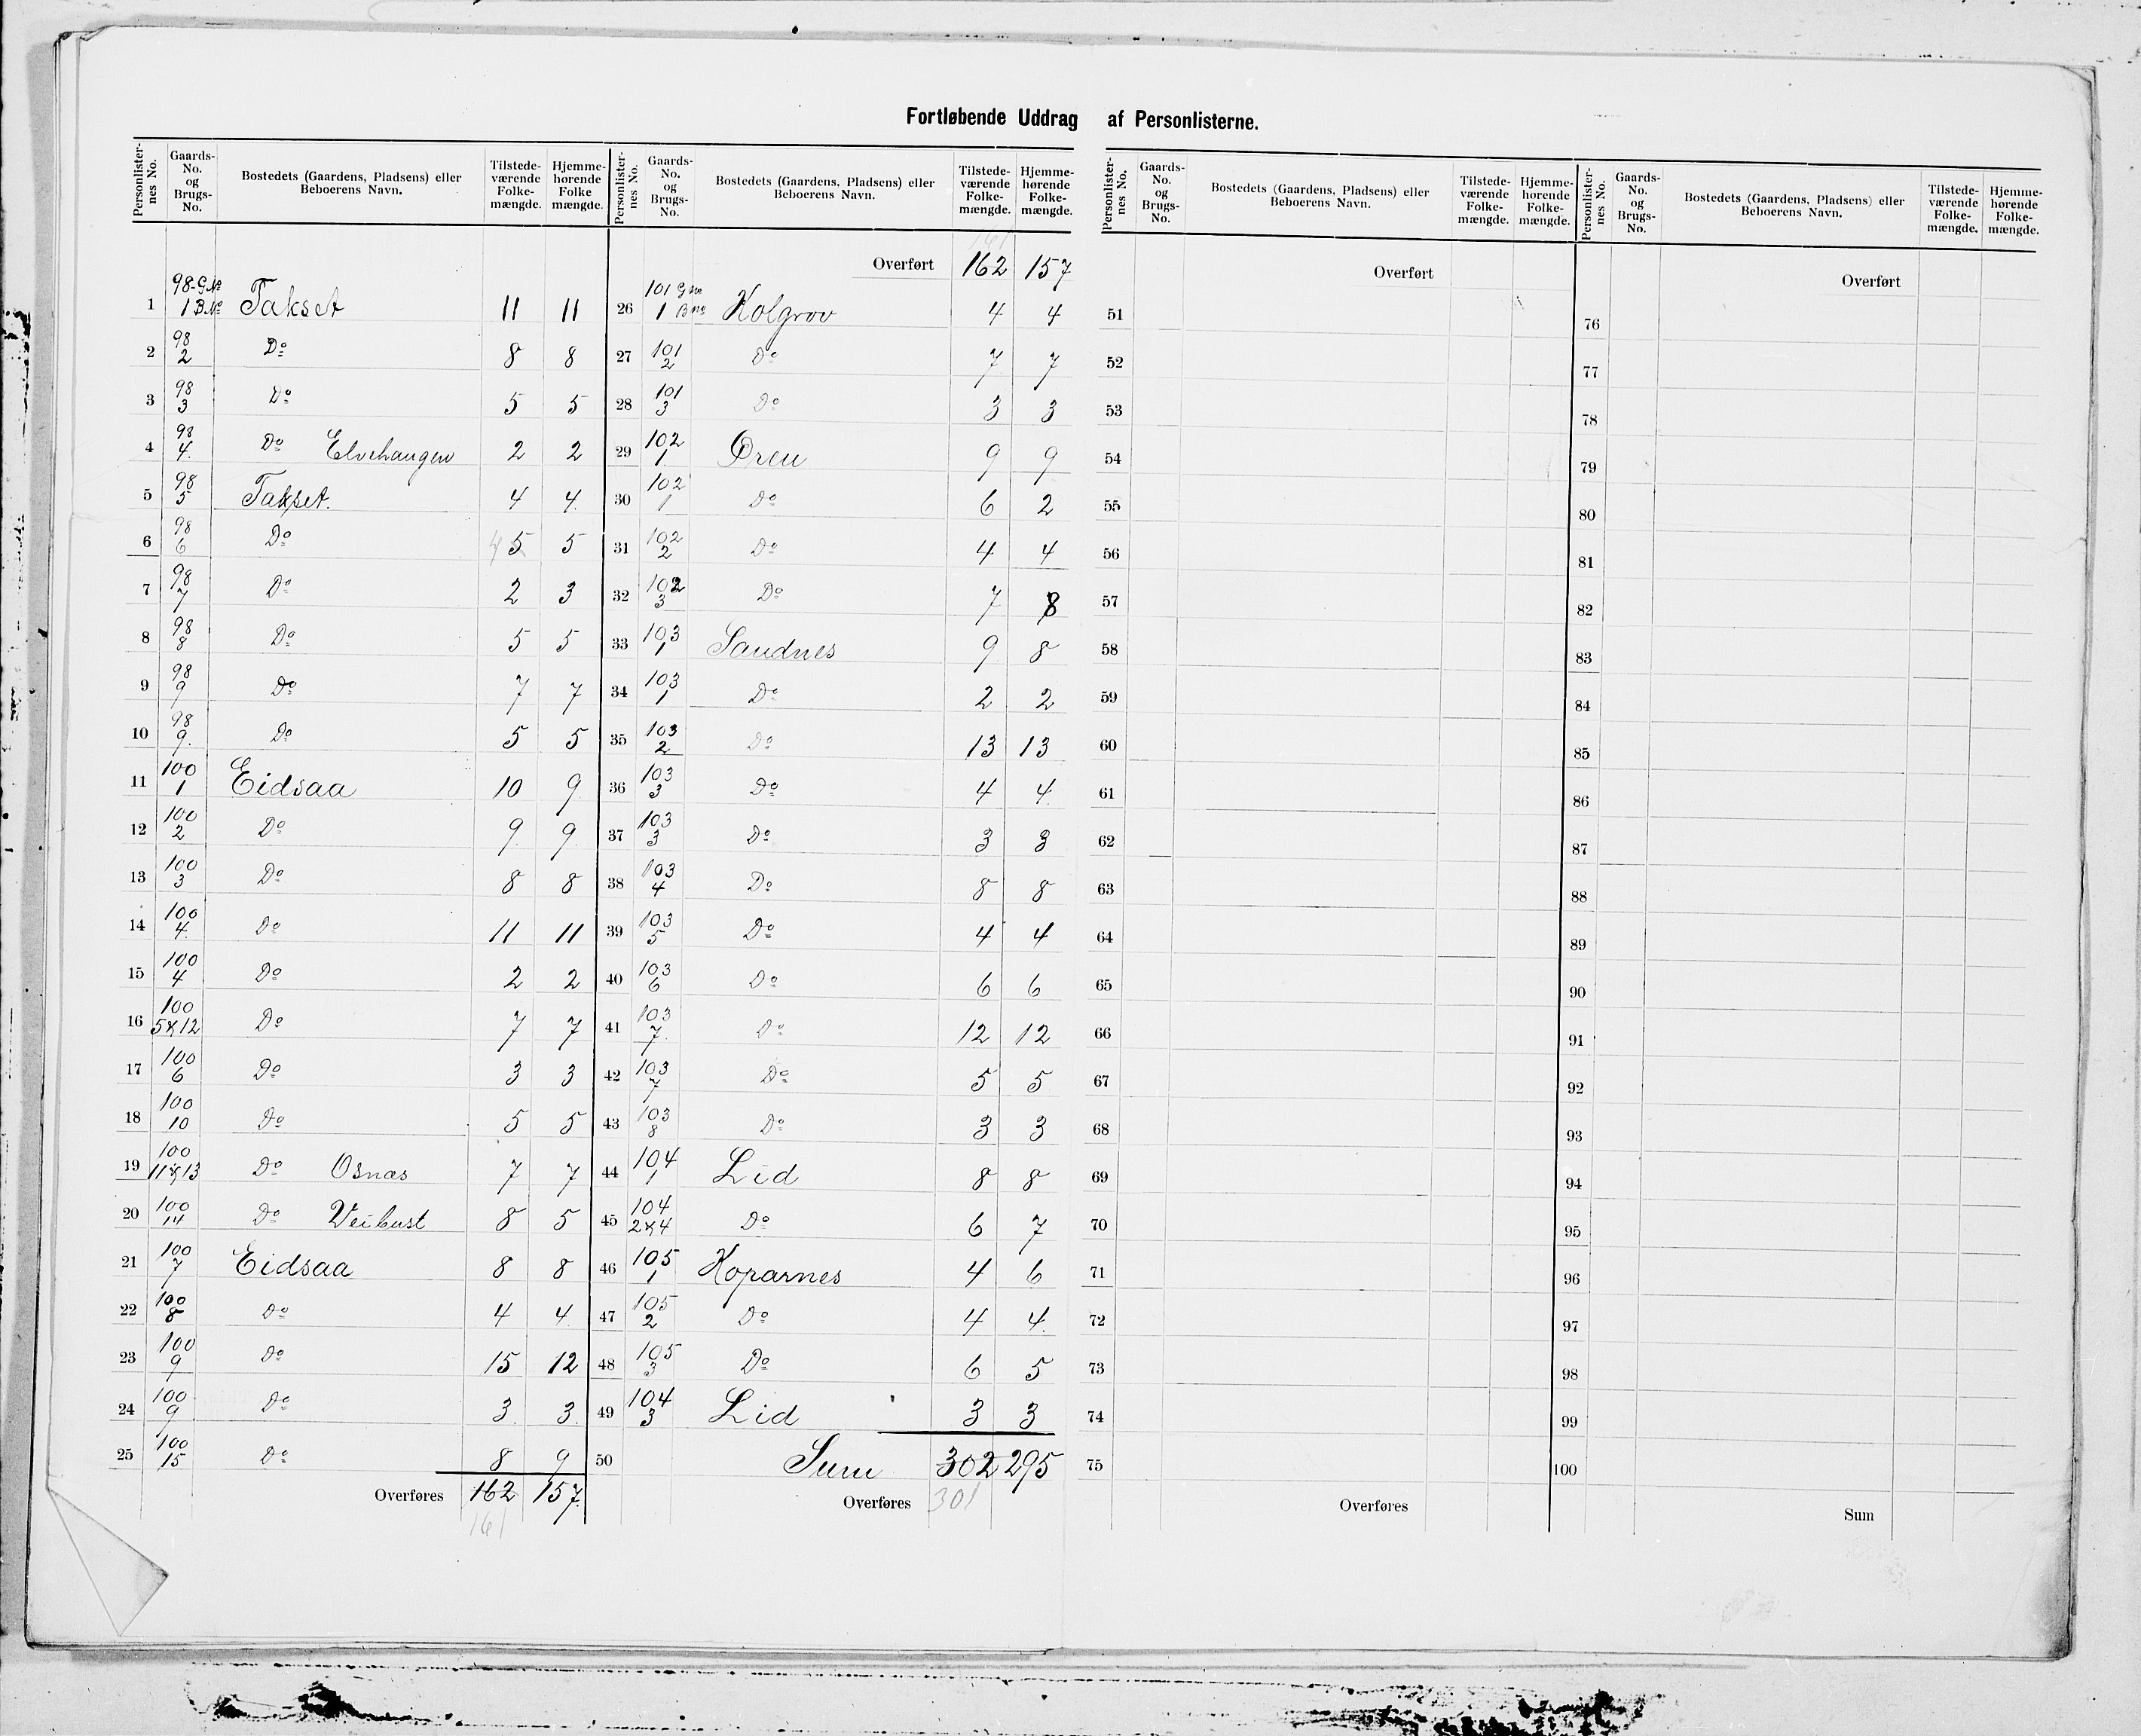 Fortløbende Uddrag af Personlisterne.
Personlister-nes No. | Gaards-No. og Brugs-No. | Bostedets (Gaardens, Pladsens) eller Beboerens Navn. | Tilstede-værende Folke-mængde. | Hjemme-hørende Folke mængde.
1 | 98 G.No 1 B.No | Takset | 11 | 11
2 | 98 2 | Do | 8 | 8
3 | 98 3 | Do | 5 | 5
4 | 98 4. | Do Elvehaugen | 2 | 2
5 | 98 5 | Takset. | 4 | 4.
6 | 98 6 | Do | 4 5 | 5
7 | 98 7 | Do | 2 | 3
8 | 98 8 | Do | 5 | 5
9 | 98 9 | Do | 7 | 7
10 | 98 9. | Do | 5 | 5
11 | 100 1 | Eidsaa | 10 | 9
12 | 100 2 | Do | 9 | 9
13 | 100 3 | Do | 8 | 8
14 | 100 4. | Do | 11 | 11
15 | 100 4 | Do | 2 | 2
16 | 100 5&12 | Do | 7 | 7
17 | 100 6 | Do | 3 | 3
18 | 100 10 | Do | 5 | 5
19 | 100 11&13 | Do Osnæs | 7 | 7
20 | 100 14 | Do Veibust | 8 | 5
21 | 100 7 | Eidsaa | 8 | 8
22 | 100 8 | Do | 4 | 4
23 | 100 9 | Do | 15 | 12
24 | 100 9 | Do | 3 | 3
25 | 100 15 | Do | 8 | 9
Overføres | 162 | 157.
161
Personlister-nes No. | Gaards-No. og Brugs-No. | Bostedets (Gaardens, Pladsens) eller Beboerens Navn. | Tilstede-værende Folke-mængde. | Hjemme-hørende Folke-mængde.
161
Overført | 162 | 157
26 | 101 G no 1 B no | Kolgrov | 4 | 4
27 | 101 2 | Do | 7 | 7
28 | 101 3 | Do | 3 | 3
29 | 102 1 | Øren | 9 | 9
30 | 102 1 | Do | 6 | 2
31 | 102 2 | Do | 4 | 4
32 | 102 3 | Do | 7 | 8
33 | 103 1 | Sandnes | 9 | 8
34 | 103 1 | Do | 2 | 2
35 | 103 2 | Do | 13 | 13
36 | 103 3 | Do | 4 | 4.
37 | 103 3 | Do | 3 | 3
38 | 103 4 | Do | 8 | 8
39 | 103 5 | Do | 4 | 4
40 | 103 6 | Do | 6 | 6
41 | 103 7. | Do | 12 | 12
42 | 103 7 | Do | 5 | 5
43 | 103 8 | Do | 3 | 3
44 | 104 1 | Lid | 8 | 8
45 | 104 2&4 | Do | 6 | 7
46 | 105 1 | Koparnes | 4 | 6
47 | 105 2 | Do | 4 | 4.
48 | 105 3 | Do | 6 | 5
49 | 104 3 | Lid | 3 | 3
50 | Sum | 302 | 295
Overføres | 301
Personlister-nes No. | Gaards-No. og Brugs-No. | Bostedets (Gaardens, Pladsens) eller Beboerens Navn. | Tilstede-værende Folke-mængde. | Hjemme-hørende Folke-mængde.
Overført
51
52
53
54
55
56
57
58
59
60
61
62
63
64
65
66
67
68
69
70
71
72
73
74
75
Overføres
Personlister-nes No. | Gaards-No. og Brugs-No. | Bostedets (Gaardens, Pladsens) eller Beboerens Navn. | Tilstede-værende Folke-mængde. | Hjemme-hørende Folke-mængde.
Overført
76
77
78
79
80
81
82
83
84
85
86
87
88
89
90
91
92
93
94
95
96
97
98
99
100
Sum